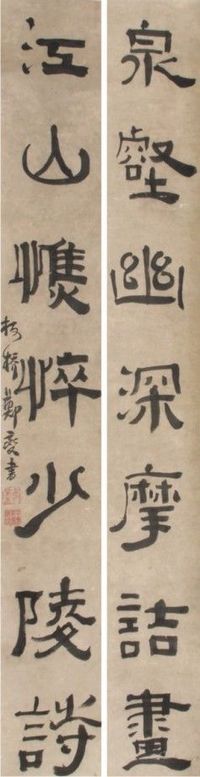 泉壑幽深摩詰畫
江山憔悴少陵詩
板橋鄭燮書